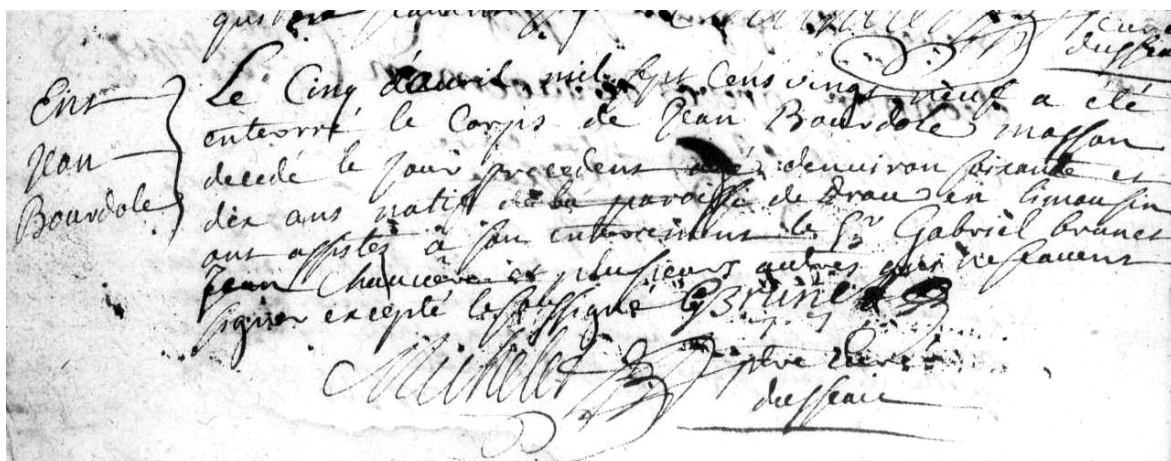 dusseau
Ent
Jean
Bourdole
Le Cinq d'avril mil sept cens vingt neuf a été
enterré le Corps de Jean Bourdole masson
decedé le jour precedent agé denviron soixante et
dix ans natif de la paroisse de en limousin
ont assistez à son enterrement le Sr Gabriel brunet
Jean et plusieurs autres qui ne scavent
signer excepté le soussigné GBrunet
Michelet ptre
dusseau